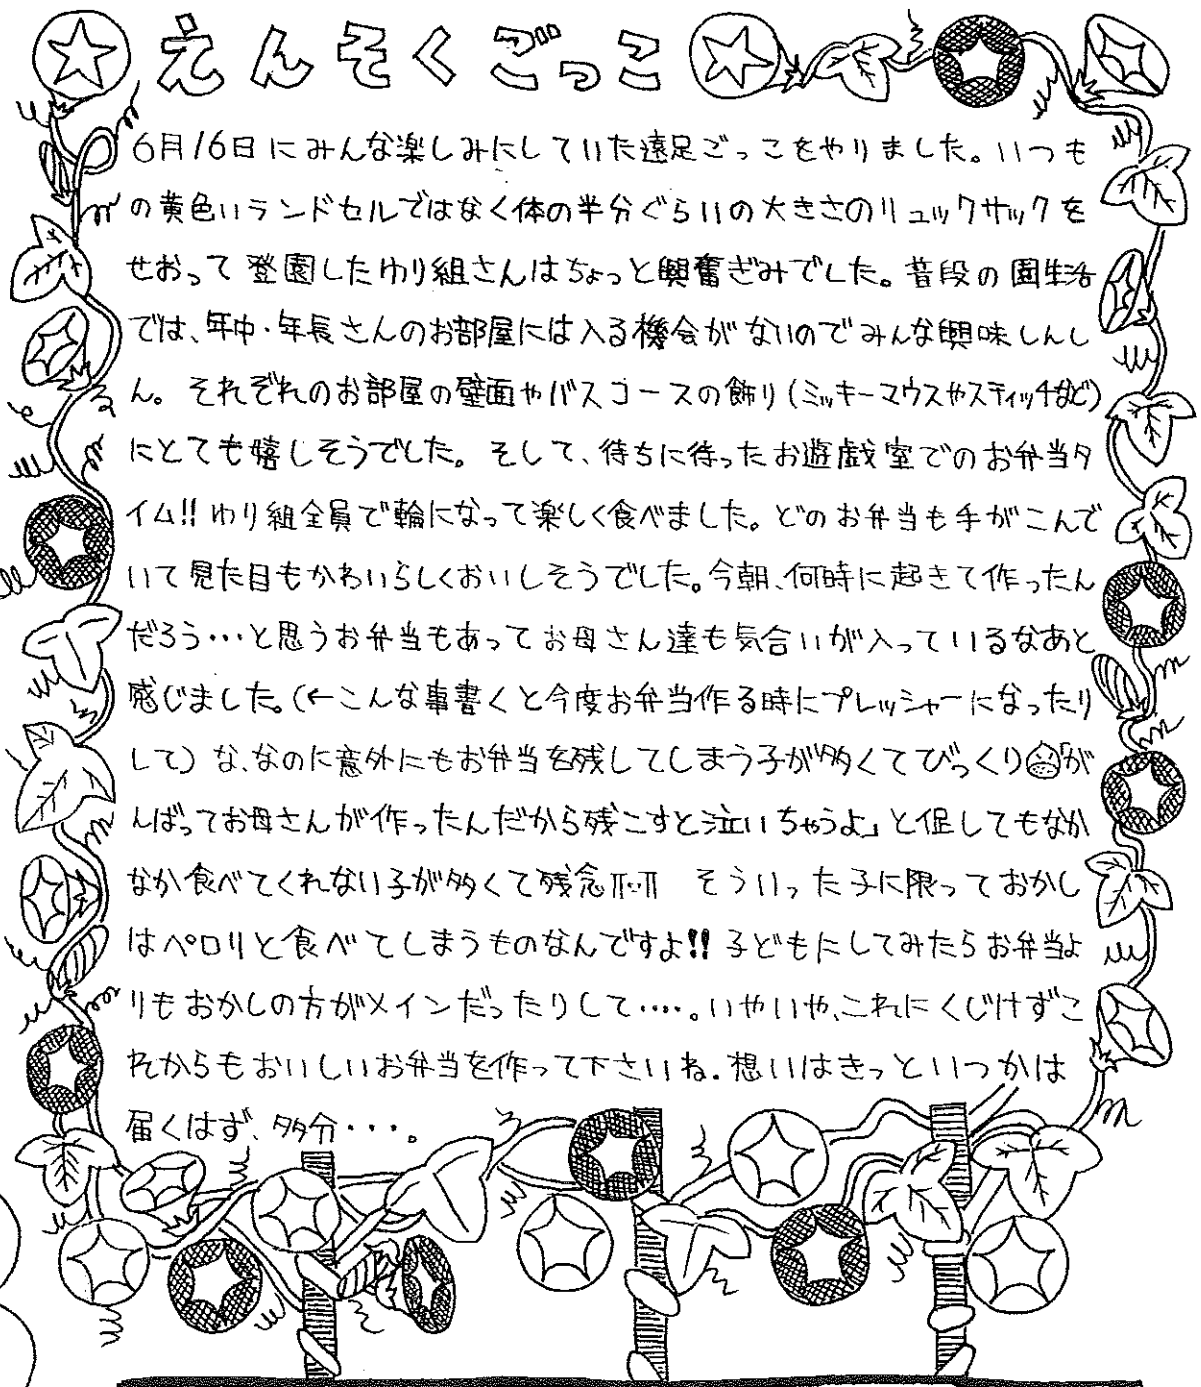 えんそくごっこ
6月16日にみんな楽しみにしていた遠足ごっこをやりました。いつも
の黄色いランドセルではなく体の半分ぐらいの大きさのリュックサックを
せおって登園したゆり組さんはちょっと興奮ぎみでした。普段の園生活
では、年中・年長さんのお部屋には入る機会がないのでみんな興味しんし
ん。それぞれのお部屋の壁面やバスコースの飾り(ミッキーマウスやスティッチなど)
にとても嬉しそうでした。そして、待ちに待ったお遊戯室でのお弁当タ
イム!!ゆり組全員で輪になって楽しく食べました。どのお弁当も手がこんで
いて見た目もかわいらしくおいしそうでした。今朝、何時に起きて作ったん
だろう…と思うお弁当もあってお母さん達も気合いが入っているなあと
感じました。(←こんな事書くと今度お弁当作る時にプレッシャーになったり
して)な、なのに意外にもお弁当を残してしまう子が多くてびっくり「が
んばってお母さんが作ったんだから残こすと泣いちゃうよ」と促してもなか
なか食べてくれない子が多くて残念 そういった子に限っておかし
はペロリと食べてしまうものなんですよ!!子どもにしてみたらお弁当よ
りもおかしの方がメインだったりして‥‥。いやいや、これにくじけずこ
れからもおいしいお弁当を作って下さいね。想いはきっといつかは
届くはず、多分・・・。